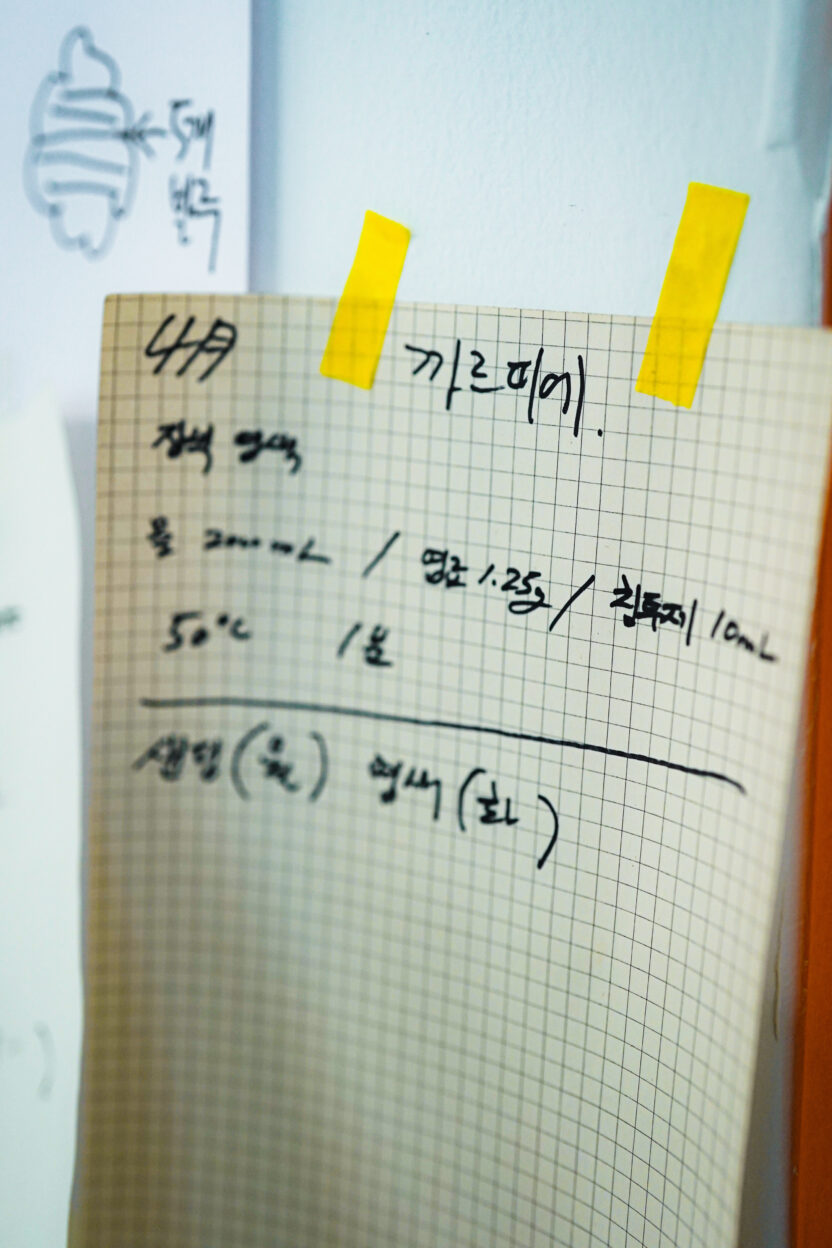 5개
발주
4月 까르띠에.
점색 염색
물 2000mL / 염료 1.25g / 침투제 10mL
50°C 1분
샌딩(월) 염색(화)